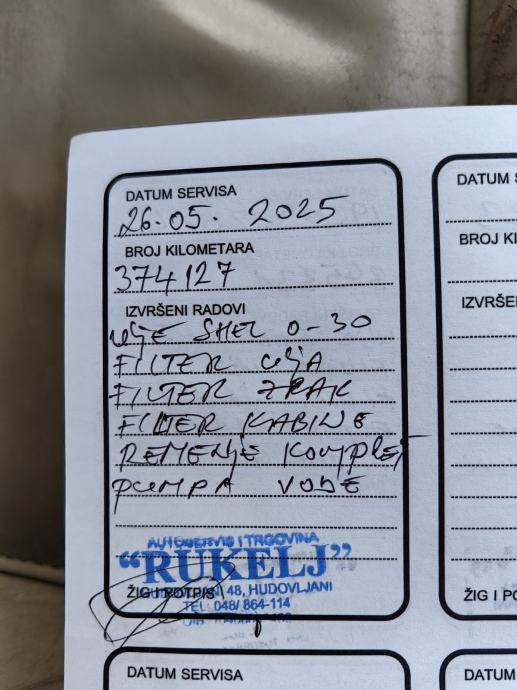 DATUM SERVISA
26.05. 2025
BROJ KILOMETARA
374127
IZVRŠENI RADOVI
ulje SHEL 0-30
FILTER ulja
FILTER ZRAK
FILTER KABINE
REMENJE KOMPLET
PUMPA VODE
AUTOSERVIS I TRGOVINA
"RUKELJ"
ŽIG I POTPIS
48, HUDOVLJANI
TEL: 048/ 864-114
DATUM SERVISA
DATUM
BROJ
IZVRŠENI
ŽIG I
DATUM SERVISA